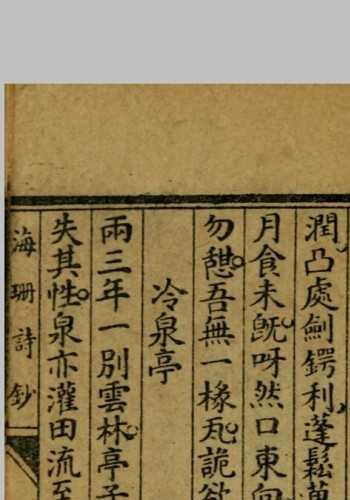 潤凸處劍鍔利蓬鬆
月食未既呀然口東向
勿憇吾無一椽瓦詭欲
冷泉亭
兩三年一別雲林亭子
失其性泉亦灌田流至
海珊詩鈔